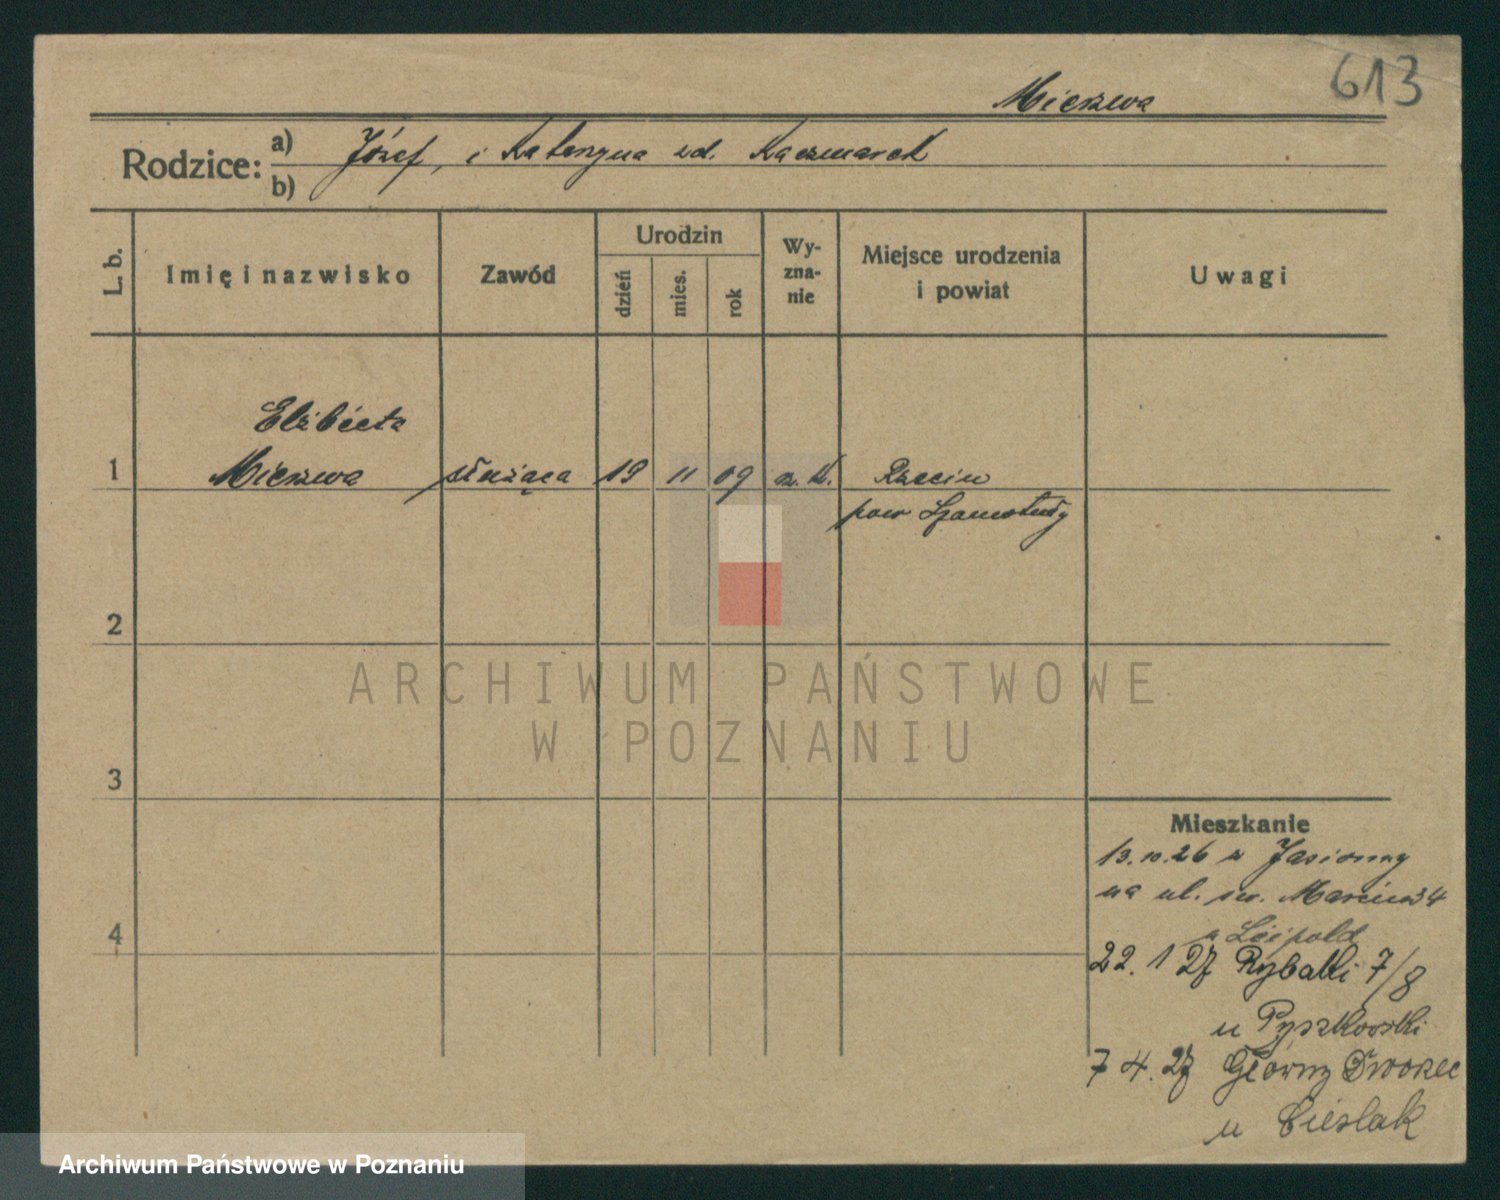 613
Mierzwa
Rodzice: a) Józef, i Katarzyna zd. Kaczmarek
b)
L. b.
Imię i nazwisko
Zawód
Urodzin
dzień
mies.
rok
Wy-
zna-
nie
Miejsce urodzenia
i powiat
Uwagi
Elżbieta
1 Mierzwa służąca 19 11 09 rz. k. Rzecin
pow Szamotuły
2
3
4
Mieszkanie
13.10.26 z Jasionny
na ul. św. Marcin 34
u Leipold
22. 1 27 Rybaki 7/8
u Pyszkowski
7 4. 27 Główny Dworzec
u Cieslak
ARCHIWUM PAŃSTWOWE
W POZNANIU
Archiwum Państwowe w Poznaniu